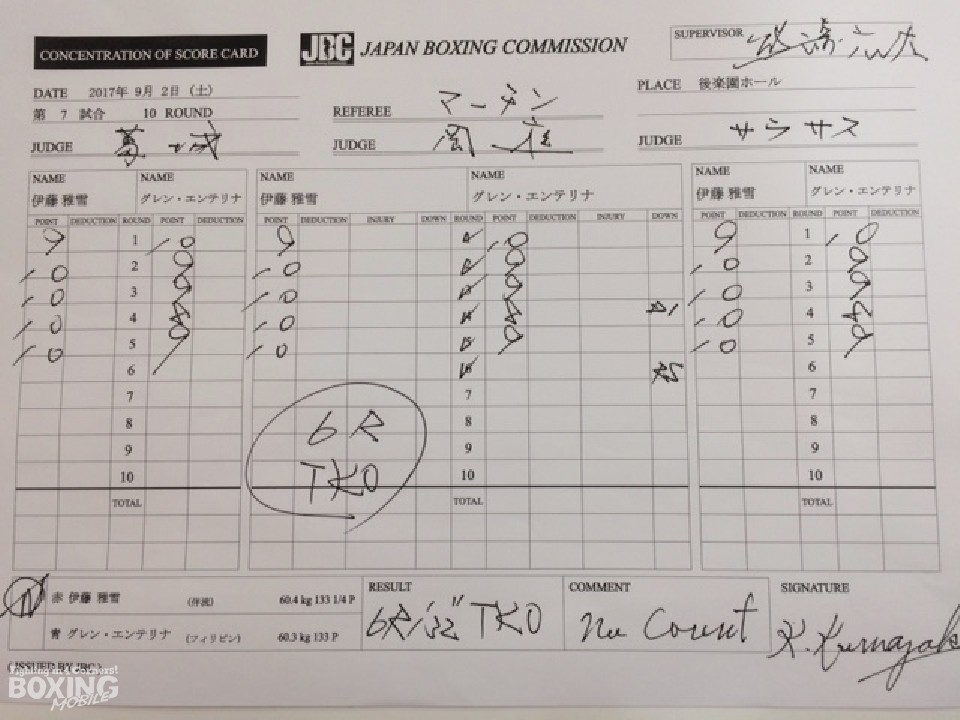 CONCENTRATION OF SCORE CARD
JBC JAPAN BOXING COMMISSION
SUPERVISOR
DATE 2017年 9月 2日 (土)
PLACE 後楽園ホール
第 7 試合 10 ROUND
REFEREE マーチン
JUDGE
JUDGE
JUDGE サラサス
NAME NAME NAME NAME NAME NAME
伊藤 雅雪 グレン・エンテリナ 伊藤 雅雪 グレン・エンテリナ 伊藤 雅雪 グレン・エンテリナ
POINT DEDUCTION ROUND POINT DEDUCTION POINT DEDUCTION INJURY DOWN ROUND POINT DEDUCTION INJURY DOWN POINT DEDUCTION ROUND POINT DEDUCTION
9 1 10 9 10 9 1 10
10 2 9 10 9 10 2 9
10 3 9 10 9 10 3 9
10 4 8 10 8 10 4 8
10 5 9 10 9 10 5 9
6 6
7 7 7
8 8 8
9 9 9
10 10 10
6R
TKO
TOTAL TOTAL TOTAL
赤 伊藤 雅雪 (伴流) 60.4 kg 133 1/4 P
青 グレン・エンテリナ (フィリピン) 60.3 kg 133 P
RESULT
6R TKO
COMMENT
No Count
SIGNATURE
(ISSUED BY JBC)
Fighting in 4 Corners!
BOXING
MOBILE